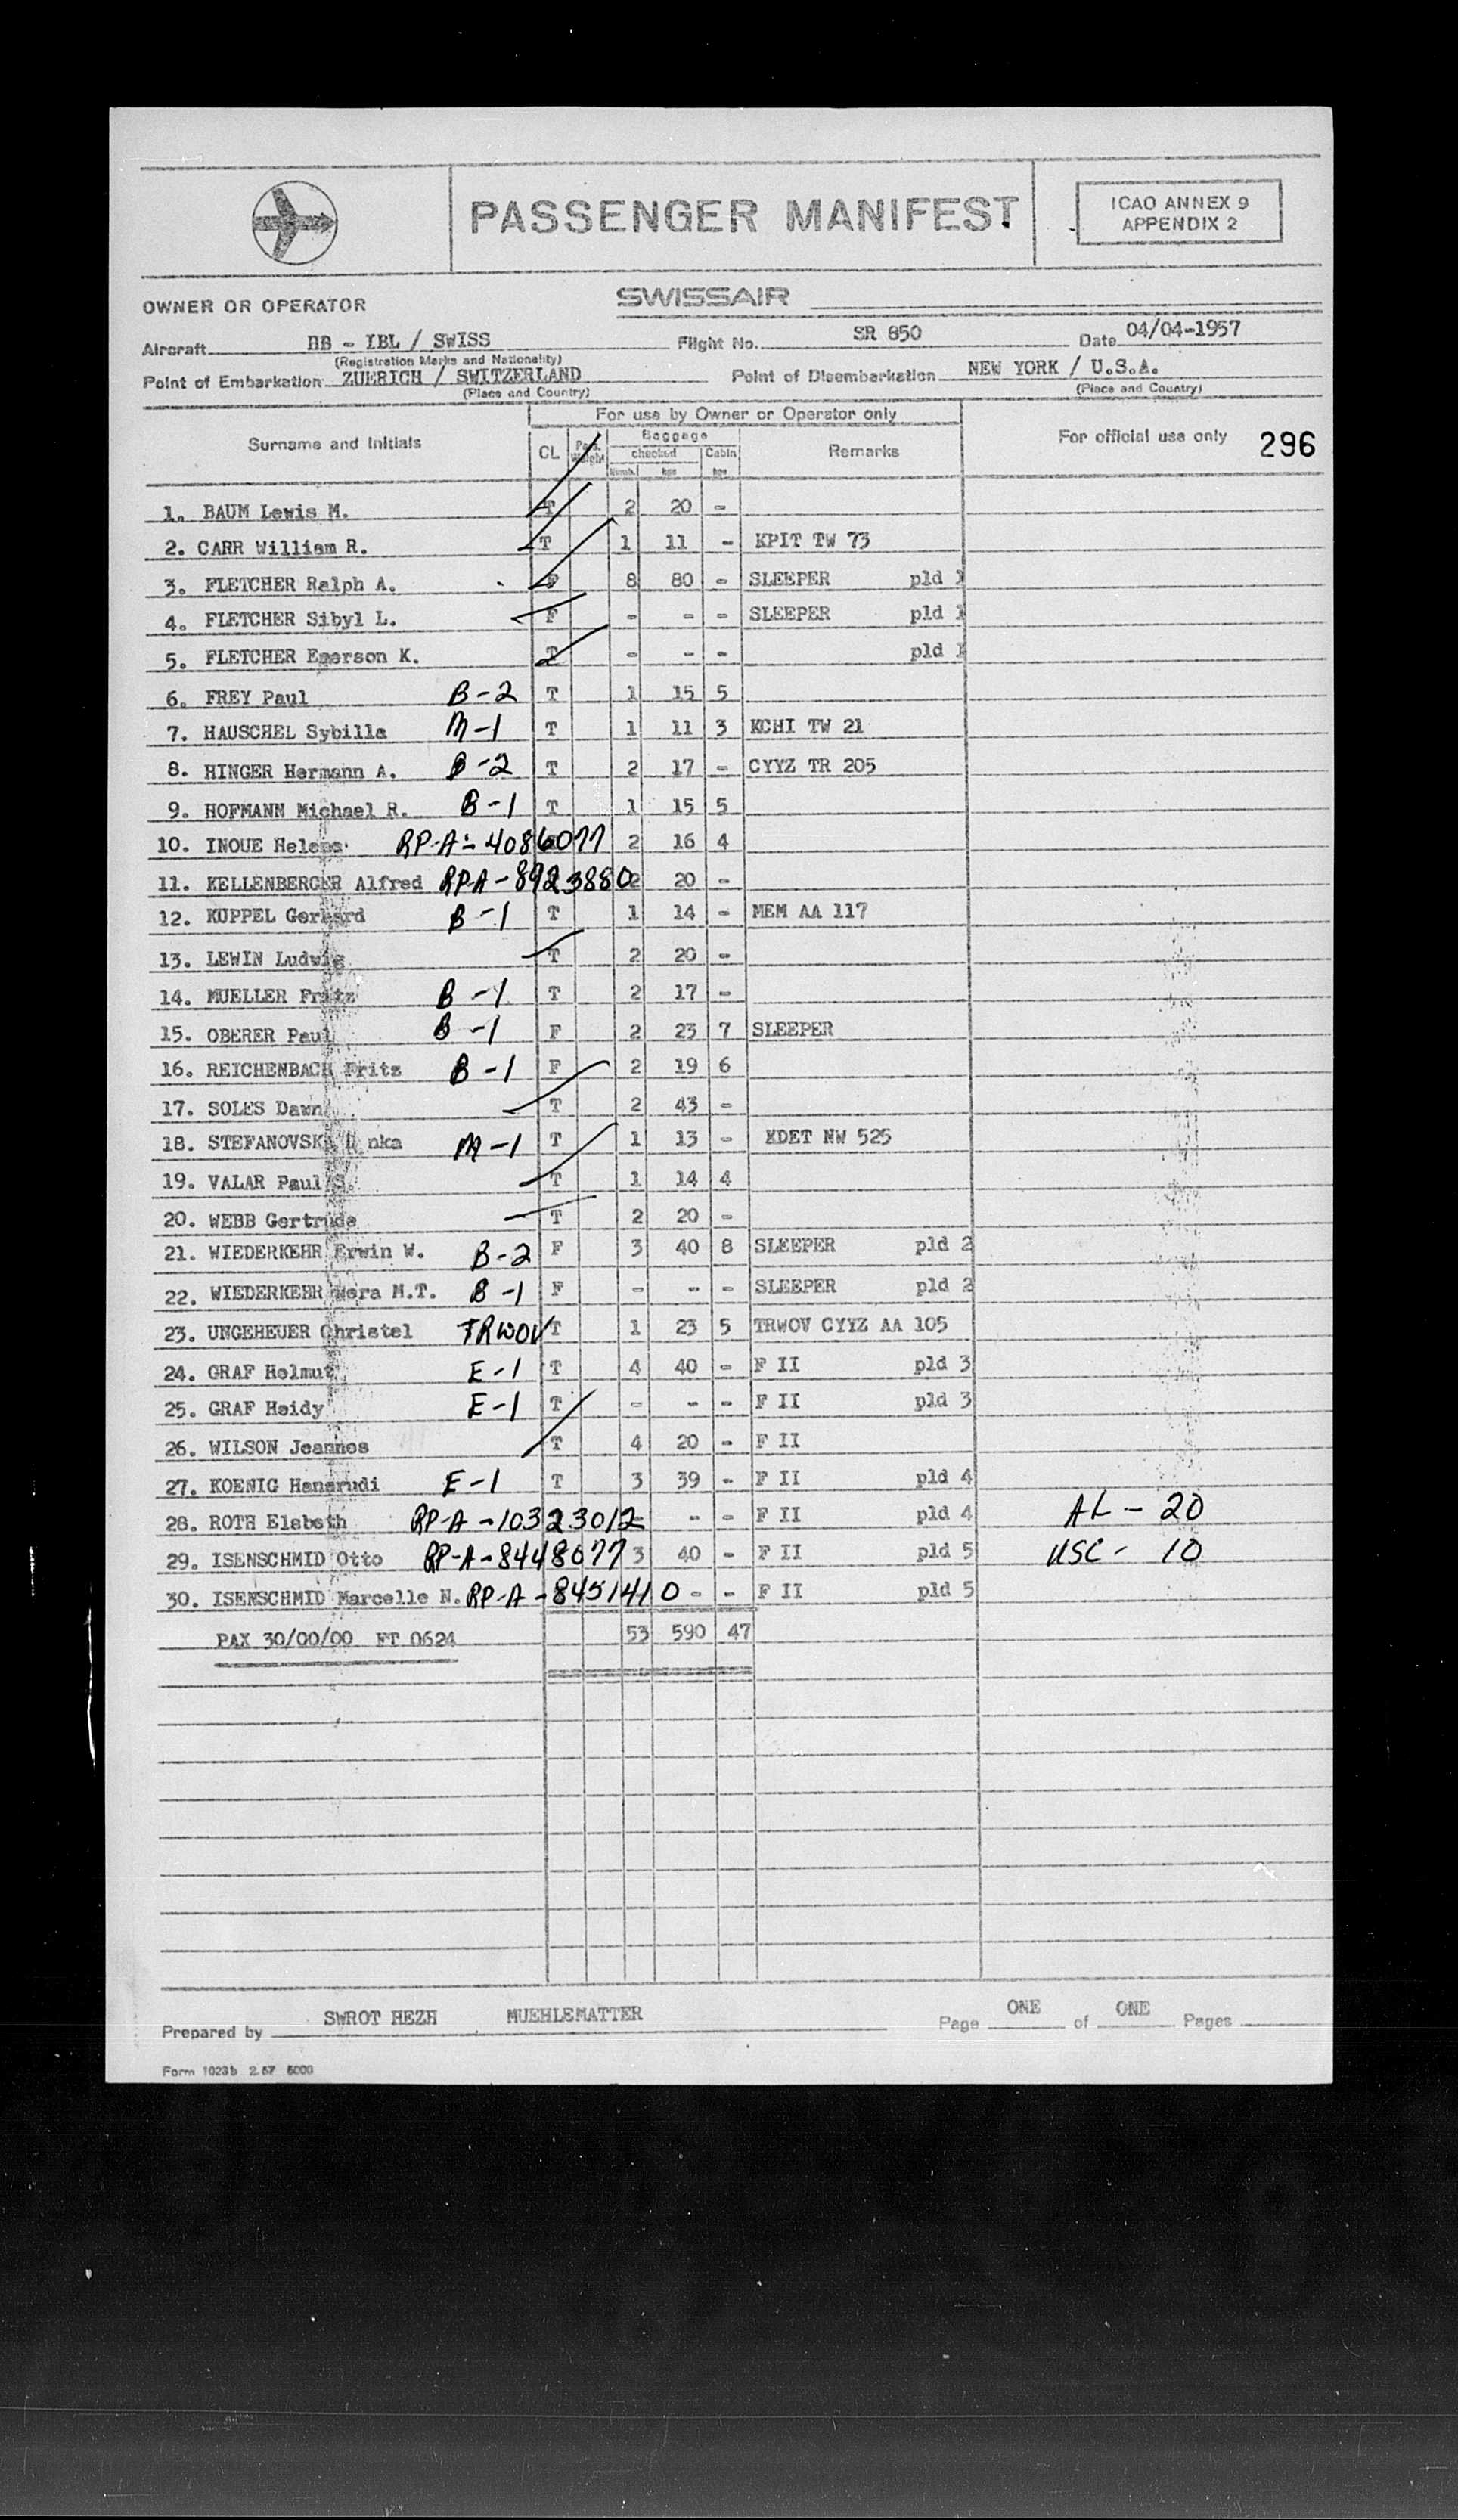 PASSENGER MANIFEST
ICAO ANNEX 9
APPENDIX 2
OWNER OR OPERATOR SWISSAIR
Aircraft HB - IBL / SWISS Flight No. SR 850 Date 04/04-1957
(Registration Marks and Nationality)
Point of Embarkation ZUERICH / SWITZERLAND Point of Disembarkation NEW YORK / U.S.A.
(Place and Country) (Place and Country)
For use by Owner or Operator only
Surname and Initials CL Pass. Weight Baggage checked Cabin Remarks For official use only 296
Numb. kgs kgs
1. BAUM Lewis M. T 2 20 -
2. CARR William R. T 1 11 - KPIT TW 73
3. FLETCHER Ralph A. F 8 80 - SLEEPER pld 1
4. FLETCHER Sibyl L. F - - - SLEEPER pld 1
5. FLETCHER Emerson K. T - - - pld 1
6. FREY Paul B-2 T 1 15 5
7. HAUSCHEL Sybilla M-1 T 1 11 3 KCHI TW 21
8. HINGER Hermann A. B-2 T 2 17 - CYYZ TR 205
9. HOFMANN Michael R. B-1 T 1 15 5
10. INOUE Helene RP-A-4086077 2 16 4
11. KELLENBERGER Alfred RP-A-8923880 2 20 -
12. KUPPEL Gerhard B-1 T 1 14 - MEM AA 117
13. LEWIN Ludwig T 2 20 -
14. MUELLER Fritz B-1 T 2 17 -
15. OBERER Paul B-1 F 2 23 7 SLEEPER
16. REICHENBACH Fritz B-1 F 2 19 6
17. SOLES Dawn T 2 43 -
18. STEFANOVSKA nka M-1 T 1 13 - KDET NW 525
19. VALAR Paul S. T 1 14 4
20. WEBB Gertrude T 2 20 -
21. WIEDERKEHR Erwin W. B-2 F 3 40 8 SLEEPER pld 2
22. WIEDERKEHR Wera M.T. B-1 F - - - SLEEPER pld 2
23. UNGEHEUER Christel TRWOV T 1 23 5 TRWOV CYYZ AA 105
24. GRAF Helmut E-1 T 4 40 - F II pld 3
25. GRAF Heidy E-1 T - - - F II pld 3
26. WILSON Jeannes T 4 20 - F II
27. KOENIG Hansrudi E-1 T 3 39 - F II pld 4
28. ROTH Elsbeth RP-A-10323012 - - - F II pld 4 AL - 20
29. ISENSCHMID Otto RP-A-8448077 3 40 - F II pld 5 USC - 10
30. ISENSCHMID Marcelle N. RP-A-8451410 - - F II pld 5
PAX 30/00/00 FT 0624 53 590 47
Prepared by SWROT HEZH MUEHLEMATTER Page ONE of ONE Pages
Form 1023b 2.57 5000